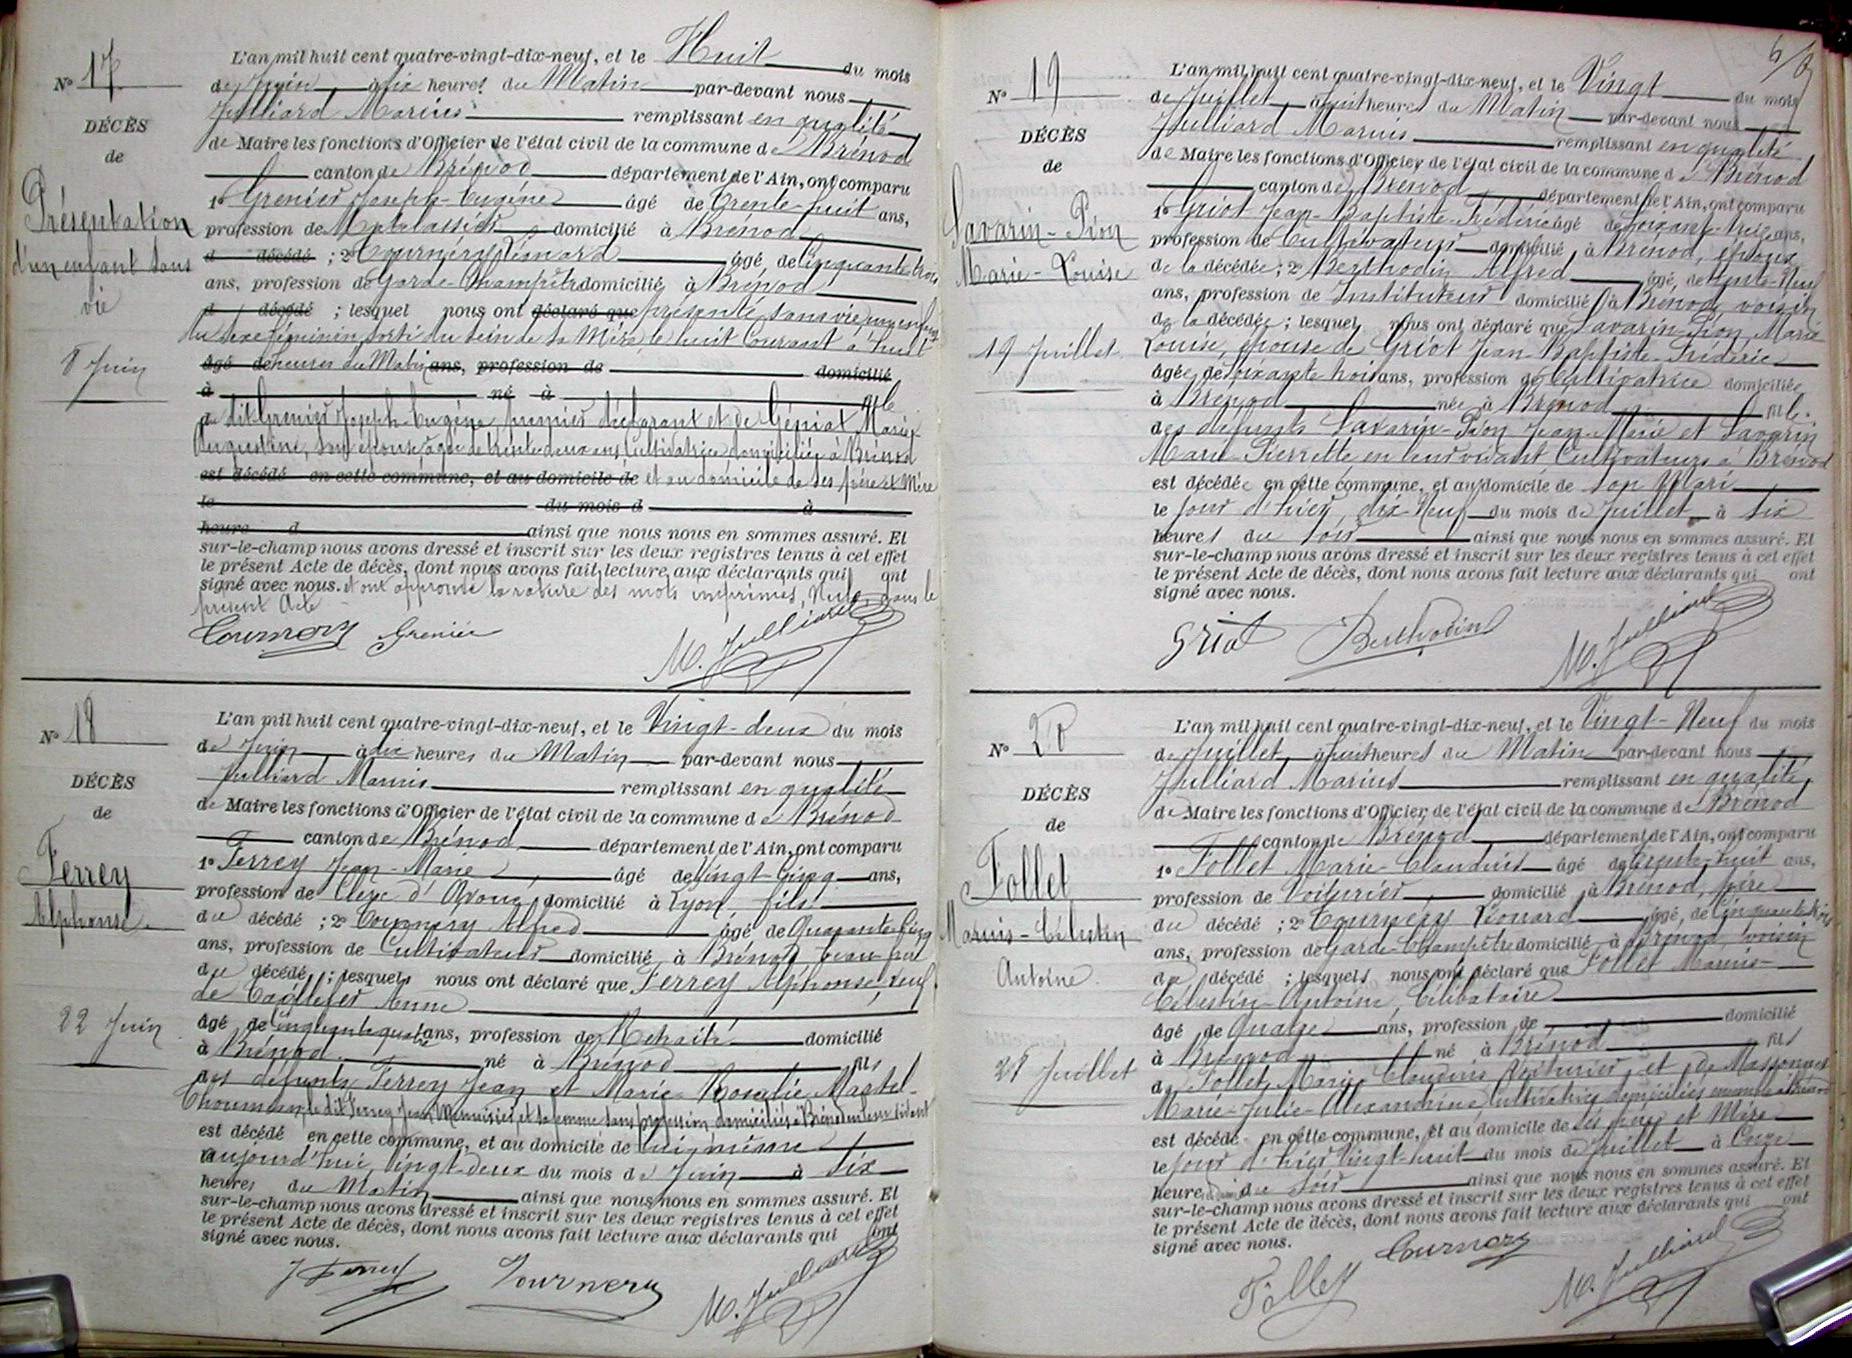 N° 17
DÉCÈS
de
Présentation
d'un enfant sans
vie
8 Juin
L'an mil huit cent quatre-vingt-dix-neuf, et le Huit du mois
de Juin à dix heures du Matin par-devant nous
Julliard Marius remplissant en qualité
de Maire les fonctions d'Officier de l'état civil de la commune de Brénod
canton de Brénod département de l'Ain, ont comparu
1° Grenier Joseph-Eugène âgé de Trente-huit ans,
profession de domicilié à Brénod
d décédé ; 2° Tournéry Léonard âgé de Cinquante trois
ans, profession de Garde-Champêtre domicilié à Brénod
d décédé ; lesquel nous ont déclaré que présenté sans vie un enfant
du sexe féminin sorti du sein de sa Mère le huit Courant à huit
âgé de heures du Matin ans, profession de domicilié
à né à fille
du dit Grenier Joseph Eugène, premier déclarant et de Géniat Marie-
Augustine, son épouse âgée de trente deux ans Cultivatrice domiciliée à Brénod
est décédé en cette commune, et au domicile de et au domicile de ses père et Mère
le du mois d à
heure d ainsi que nous nous en sommes assuré. Et
sur-le-champ nous avons dressé et inscrit sur les deux registres tenus à cet effet
le présent Acte de décès, dont nous avons fait lecture aux déclarants qui ont
signé avec nous. et ont approuvé la rature des mots imprimés, Nuls, dans le
présent Acte
Tournery Grenier M. Julliard
N° 18
DÉCÈS
de
Ferrey
Alphonse
22 Juin
L'an mil huit cent quatre-vingt-dix-neuf, et le Vingt-deux du mois
de Juin à dix heures du Matin par-devant nous
Julliard Marius remplissant en qualité
de Maire les fonctions d'Officier de l'état civil de la commune de Brénod
canton de Brénod département de l'Ain, ont comparu
1° Ferrey Jean-Marie âgé de Vingt-Cinq ans,
profession de Clerc d'Avoué domicilié à Lyon, fils
du décédé ; 2° Tournéry Alfred âgé de Quarante Cinq
ans, profession de Cultivateur domicilié à Brénod, beau-
du décédé ; lesquels nous ont déclaré que Ferrey Alphonse, veuf
de Anne
âgé de Cinquante quatre ans, profession de Retraité domicilié
à Brénod né à Brénod fils
des défunts Ferrey Jean et Marie-Rosalie Martel-
le dit Ferrey Jean Menuisier et sa femme sans profession domiciliés à Brénod en leur vivant
est décédé en cette commune, et au domicile de lui-même
aujourd'hui Vingt-deux du mois de Juin à six
heures du Matin ainsi que nous nous en sommes assuré. Et
sur-le-champ nous avons dressé et inscrit sur les deux registres tenus à cet effet
le présent Acte de décès, dont nous avons fait lecture aux déclarants qui ont
signé avec nous.
J Ferrey Tournery M. Julliard
6
N° 19
DÉCÈS
de
Savarin-Pion
Marie-Louise
19 Juillet
L'an mil huit cent quatre-vingt-dix-neuf, et le Vingt du mois
de Juillet à huit heures du Matin par-devant nous
Julliard Marius remplissant en qualité
de Maire les fonctions d'Officier de l'état civil de la commune de Brénod
canton de Brénod département de l'Ain, ont comparu
1° Griot Jean-Baptiste-Frédéric âgé de soixante-trois ans,
profession de Cultivateur domicilié à Brénod, époux
de la décédée ; 2° Berthodin Alfred âgé de trente-neuf
ans, profession de Instituteur domicilié à Brénod, voisin
de la décédée ; lesquel nous ont déclaré que Savarin-Pion Marie
Louise, épouse de Griot Jean-Baptiste-Frédéric
âgée de soixante trois ans, profession de Cultivatrice domiciliée
à Brénod née à Brénod fille
des défunts Savarin-Pion Jean-Marie et Savarin
Marie-Pierrette en leur vivant Cultivateurs à Brénod
est décédée en cette commune, et au domicile de son Mari
le jour d'hier dix-neuf du mois de Juillet à six
heures du soir ainsi que nous nous en sommes assuré. Et
sur-le-champ nous avons dressé et inscrit sur les deux registres tenus à cet effet
le présent Acte de décès, dont nous avons fait lecture aux déclarants qui ont
signé avec nous.
Griot Berthodin M. Julliard
N° 20
DÉCÈS
de
Follet
Marius-Célestin
Antoine
28 Juillet
L'an mil huit cent quatre-vingt-dix-neuf, et le Vingt-Neuf du mois
de Juillet à huit heures du Matin par-devant nous
Julliard Marius remplissant en qualité
de Maire les fonctions d'Officier de l'état civil de la commune de Brénod
canton de Brénod département de l'Ain, ont comparu
1° Follet Marie-Claudius âgé de trente-huit ans,
profession de Voiturier domicilié à Brénod, père
du décédé ; 2° Tournéry Léonard âgé de Cinquante trois
ans, profession de Garde-Champêtre domicilié à Brénod, voisin
du décédé ; lesquels nous ont déclaré que Follet Marius-
Célestin-Antoine, Célibataire
âgé de Quatorze ans, profession de domicilié
à Brénod né à Brénod fils
de Follet Marie Claudius Voiturier, et de Massonnet
Marie-Julie-Alexandrine, Cultivatrice domiciliés ensemble à Brénod
est décédé en cette commune, et au domicile de ses père et Mère
le jour d'hier Vingt-huit du mois de Juillet à Onze
heures du soir ainsi que nous nous en sommes assuré. Et
sur-le-champ nous avons dressé et inscrit sur les deux registres tenus à cet effet
le présent Acte de décès, dont nous avons fait lecture aux déclarants qui ont
signé avec nous.
Follet Tournery M. Julliard